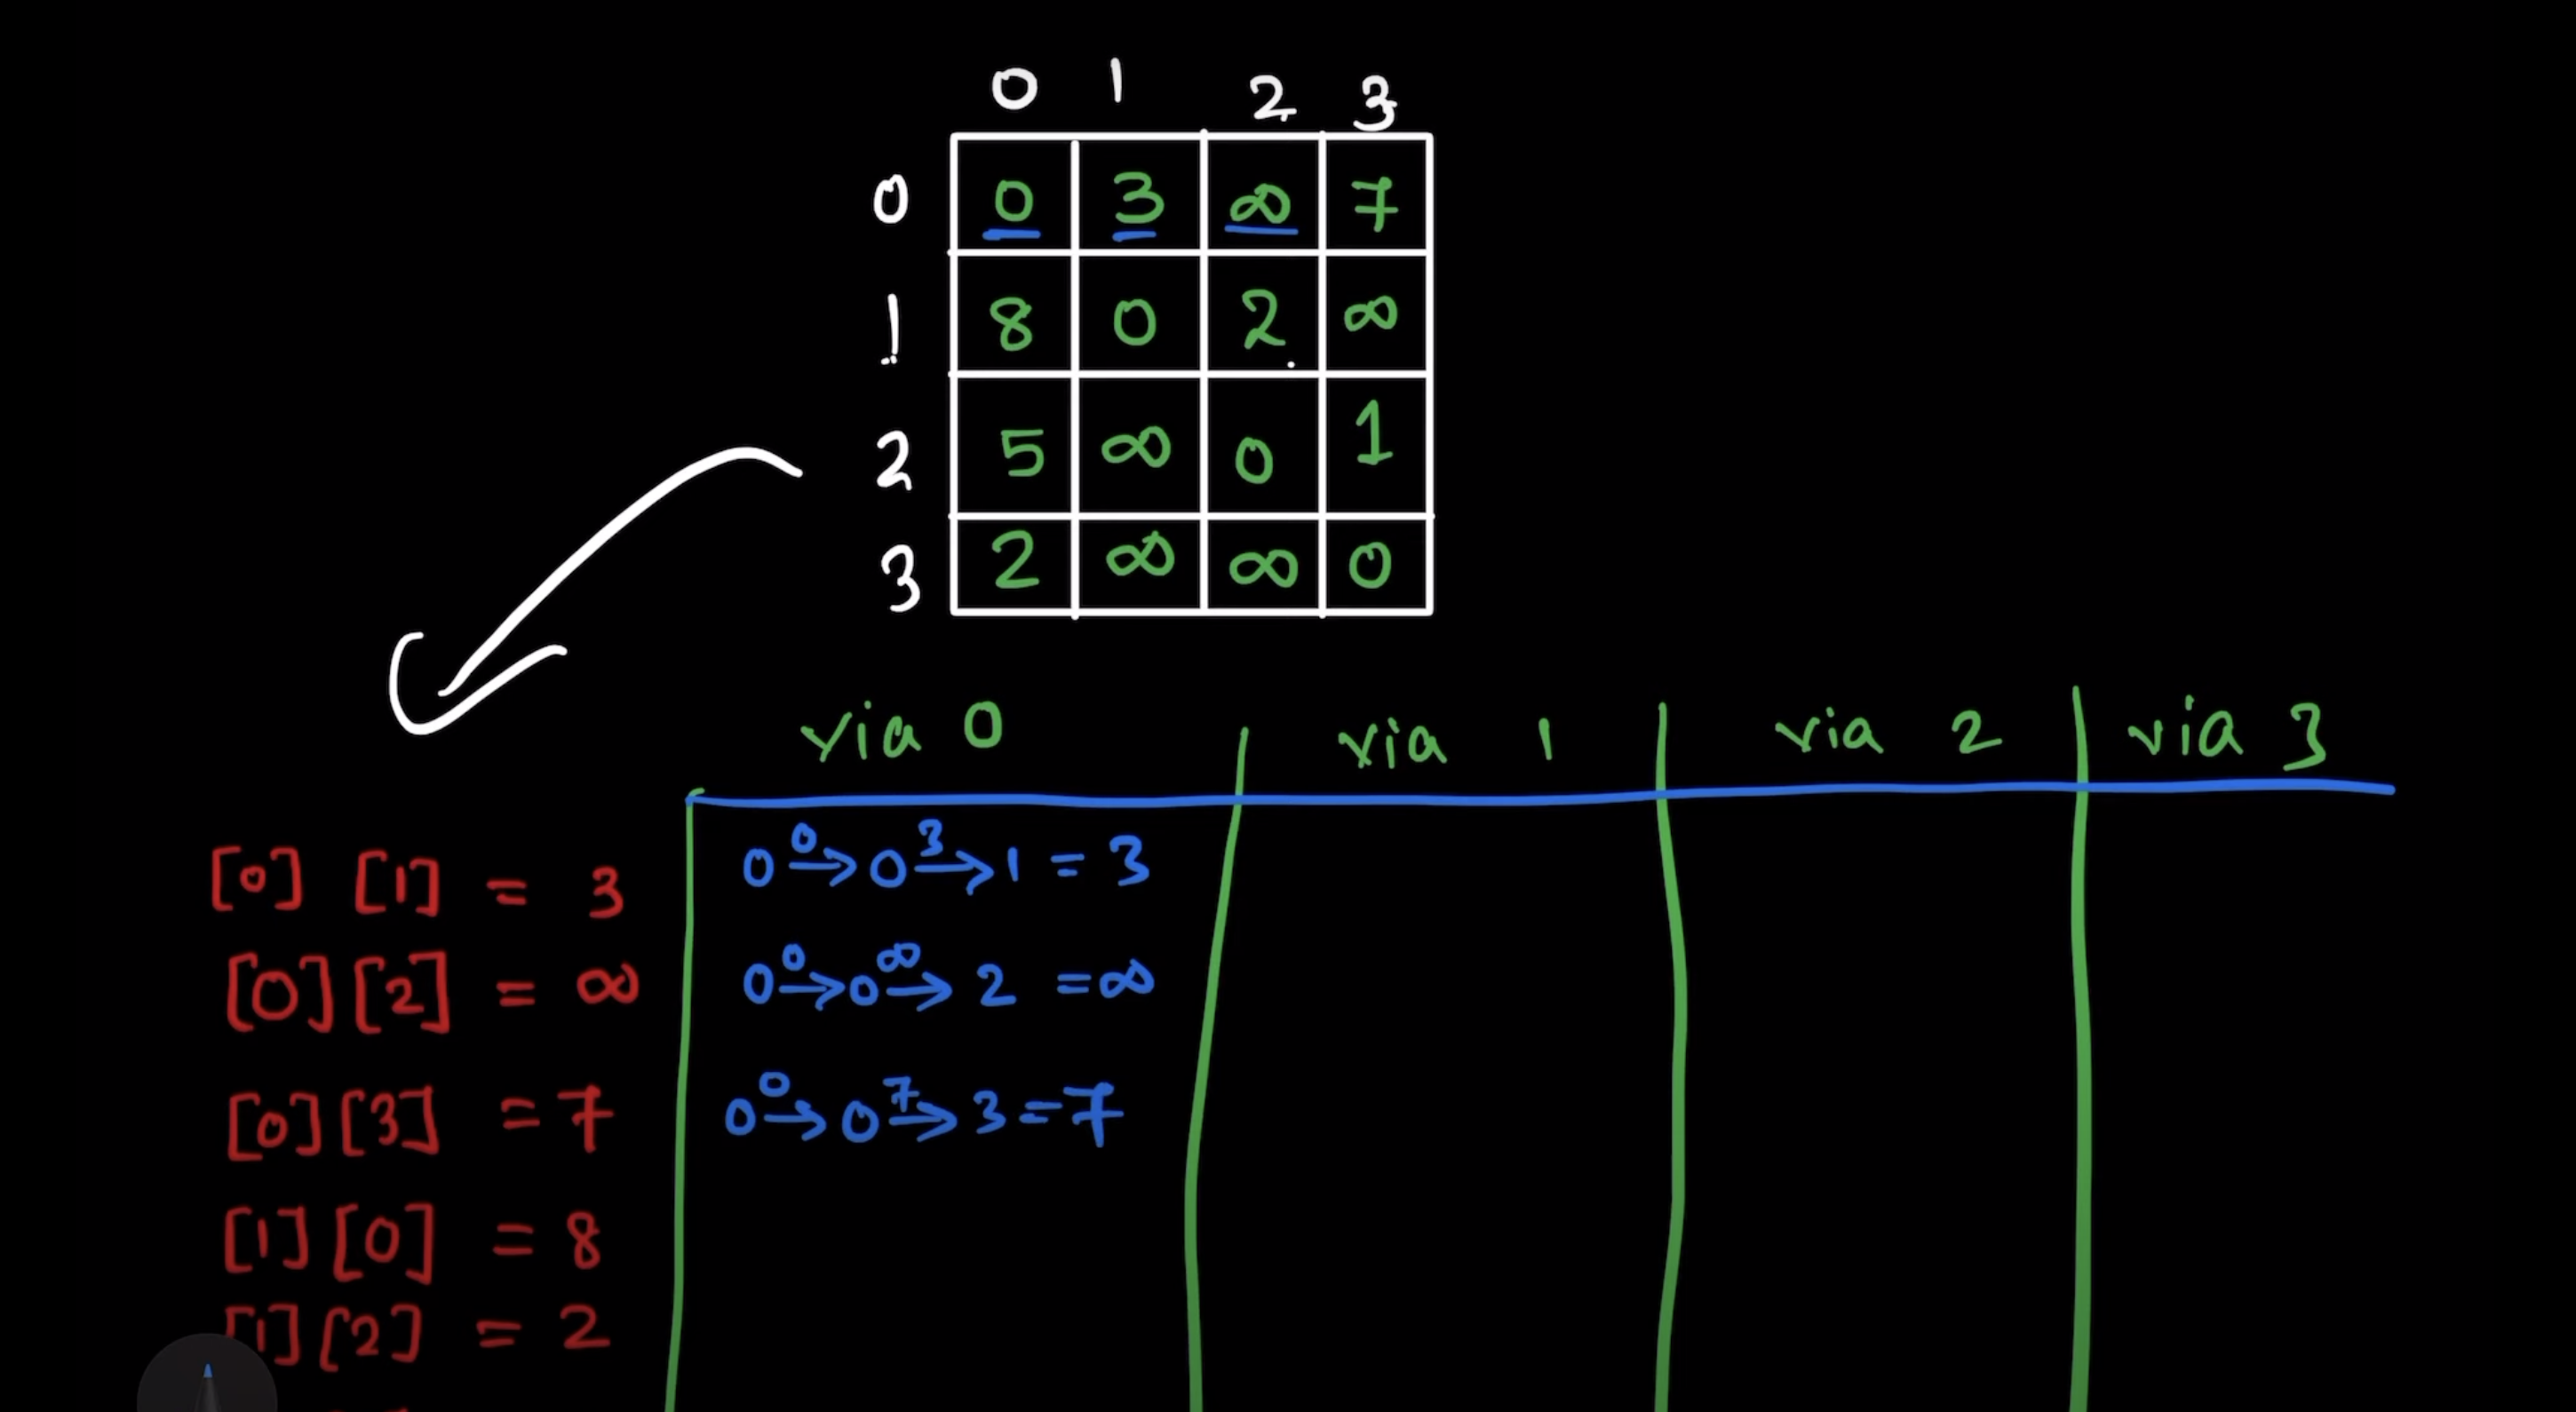 0 1 2 3
0 0 3 ∞ 7
1 8 0 2 ∞
2 5 ∞ 0 1
3 2 ∞ ∞ 0
via 0 via 1 via 2 via 3
[0] [1] = 3 0 →0 0 →3 1 = 3
[0] [2] = ∞ 0 →0 0 →∞ 2 = ∞
[0] [3] = 7 0 →0 0 →7 3 = 7
[1] [0] = 8
[1] [2] = 2